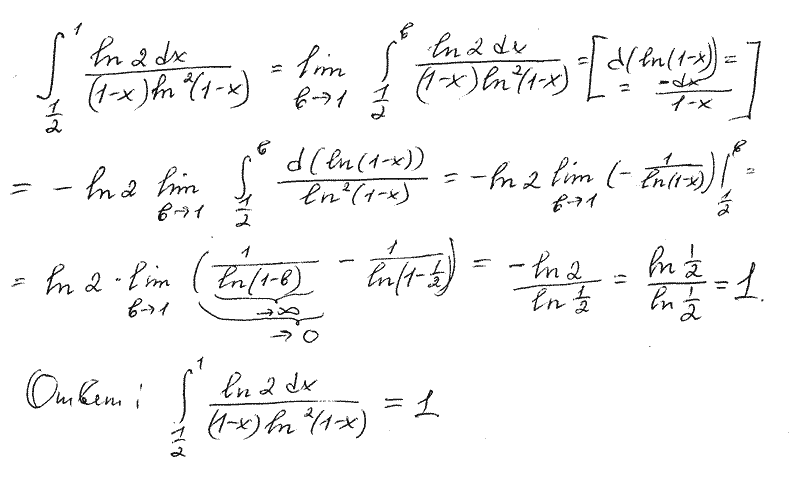 ∫_{1/2}^{1} ln 2 dx / ((1-x) ln²(1-x)) = lim_{b→1} ∫_{1/2}^{b} ln 2 dx / ((1-x) ln²(1-x)) = [d(ln(1-x)) = = -dx/(1-x)]
= - ln 2 lim_{b→1} ∫_{1/2}^{b} d(ln(1-x)) / ln²(1-x) = - ln 2 lim_{b→1} (- 1/ln(1-x)) |_{1/2}^{b} =
= ln 2 · lim_{b→1} (1/ln(1-b) - 1/ln(1-1/2)) = -ln 2 / ln 1/2 = ln 1/2 / ln 1/2 = 1.
→∞
→0
Ответ: ∫_{1/2}^{1} ln 2 dx / ((1-x) ln²(1-x)) = 1